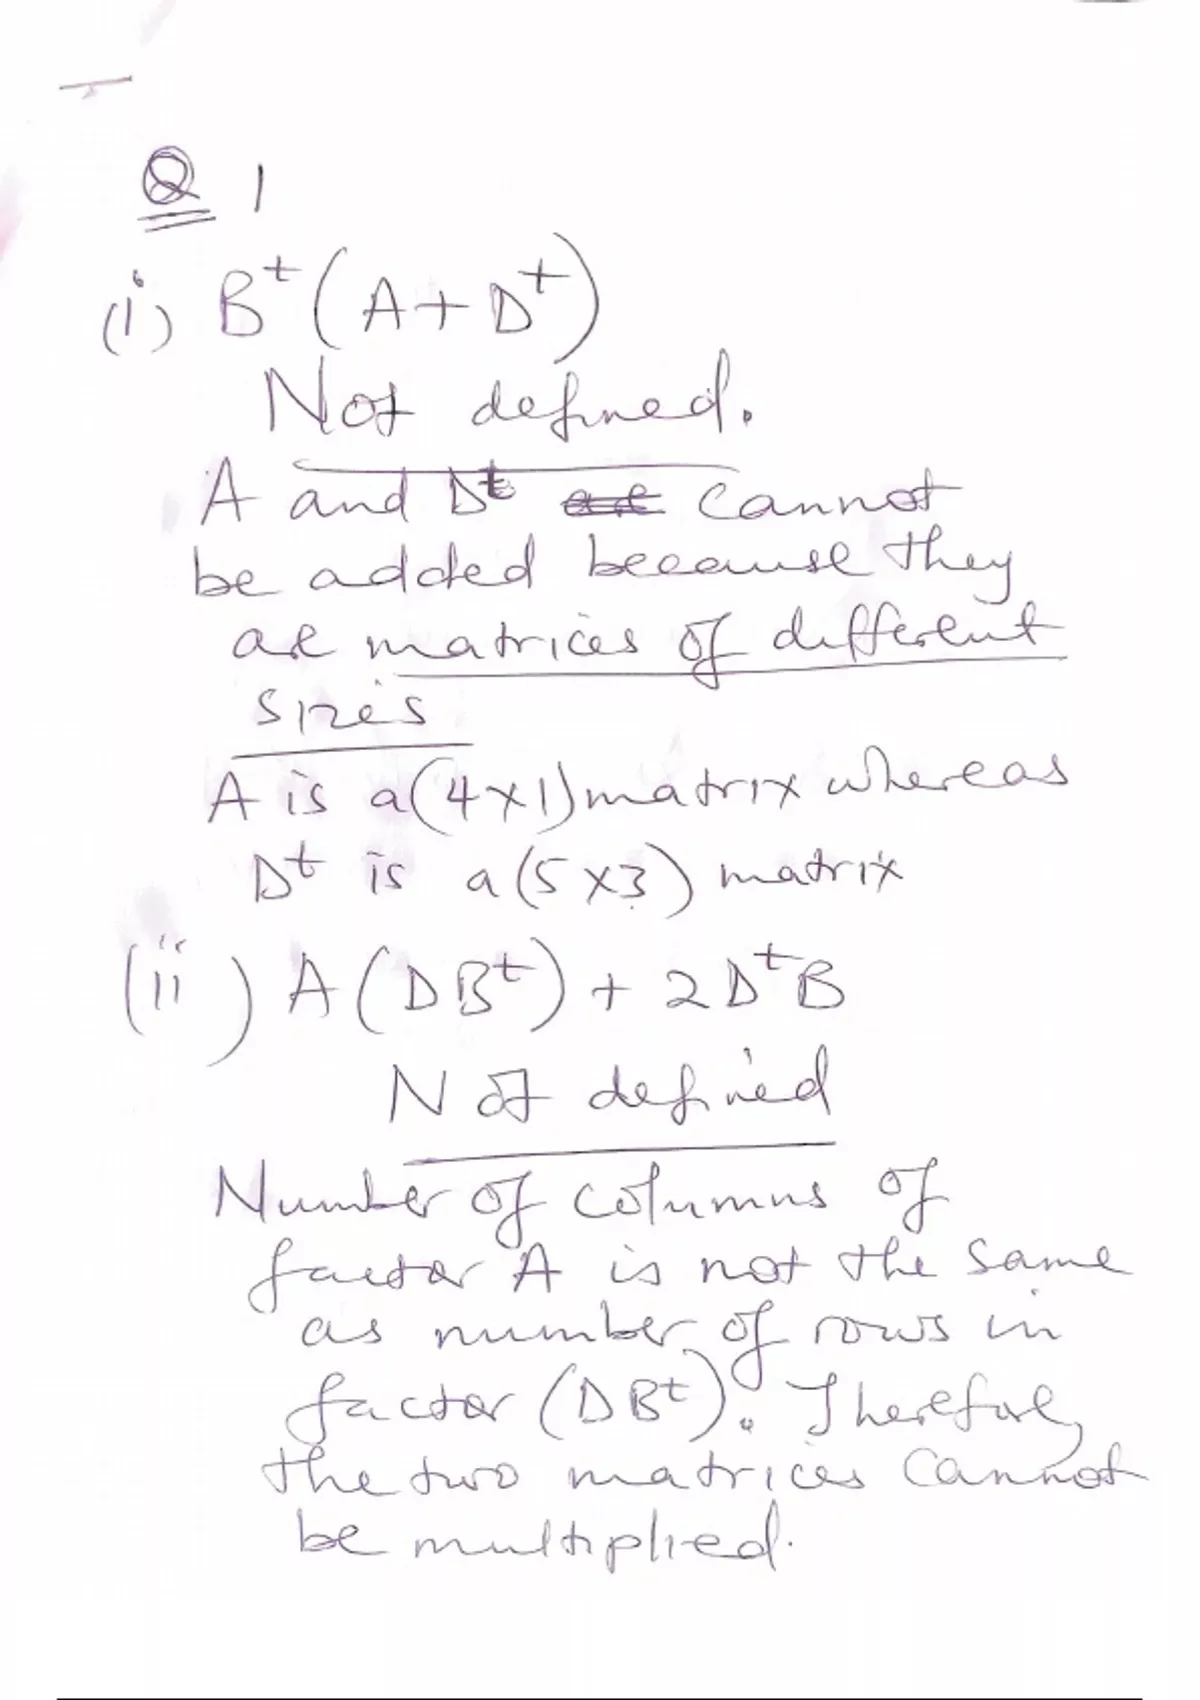 Q 1
(i) Bᵗ(A+Dᵗ)
Not defined.
A and Dᵗ cannot
be added because they
are matrices of different
sizes
A is a (4×1) matrix whereas
Dᵗ is a (5×3) matrix
(ii) A(DBᵗ) + 2DᵗB
Not defined
Number of columns of
factor A is not the same
as number of rows in
factor (DBᵗ). Therefore,
the two matrices cannot
be multiplied.